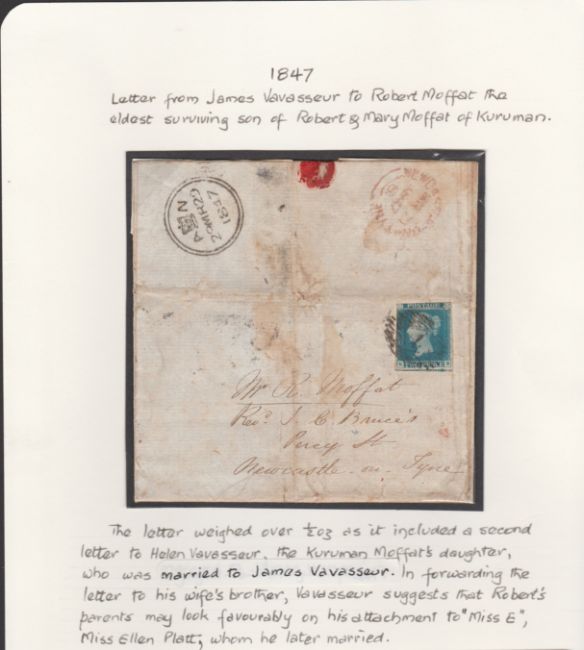 1847
Letter from James Vavasseur to Robert Moffat the
eldest surviving son of Robert & Mary Moffat of Kuruman.
A N
29MR29
1847
POSTAGE
TWO PENCE
Mr R. Moffat
Revd J. C. Bruce's
Percy St
Newcastle-on-Tyne
The letter weighed over ½oz as it included a second
letter to Helen Vavasseur. the Kuruman Moffat's daughter,
who was married to James Vavasseur. In forwarding the
letter to his wife's brother, Vavasseur suggests that Robert's
parents may look favourably on his attachment to "Miss E",
Miss Ellen Platt, whom he later married.